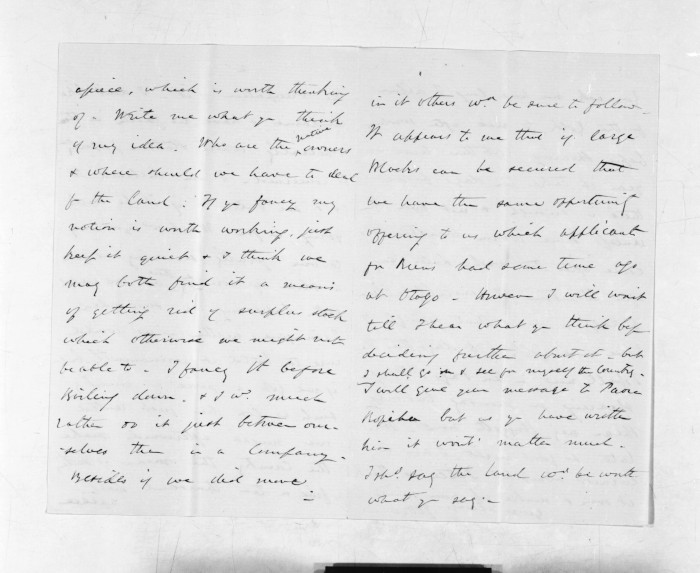 apiece, which is worth thinking
of. Write me what yo think
of my idea. Who are the native owners
& where should we have to deal
for the land. If yo fancy my
notion is worth working, just
keep it quiet & I think we
may both find it a means
of getting rid of surplus stock
which otherwise we might not
be able to. I fancy it before
Boiling down. & I wd. much
rather do it just between our-
-selves than in a Company.
Besides if we did move
in it others wd. be sure to follow.
It appears to me that if large
Blocks can be secured that
we have the same opportunity
offering to us which applicants
for Runs had some time ago
at Otago - However I will wait
till I hear what yo think bef
deciding further about it - but
I shall go & see for myself the Country.
I will give your message to Paora
but as yo have written
him it wont' matter much.
I shd. say the land wd. be worth
what yo say.-